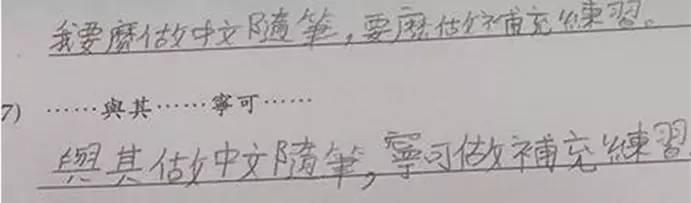 我要麼做中文隨筆，要麼做補充練習。
7) ……與其……寧可……
與其做中文隨筆，寧可做補充練習